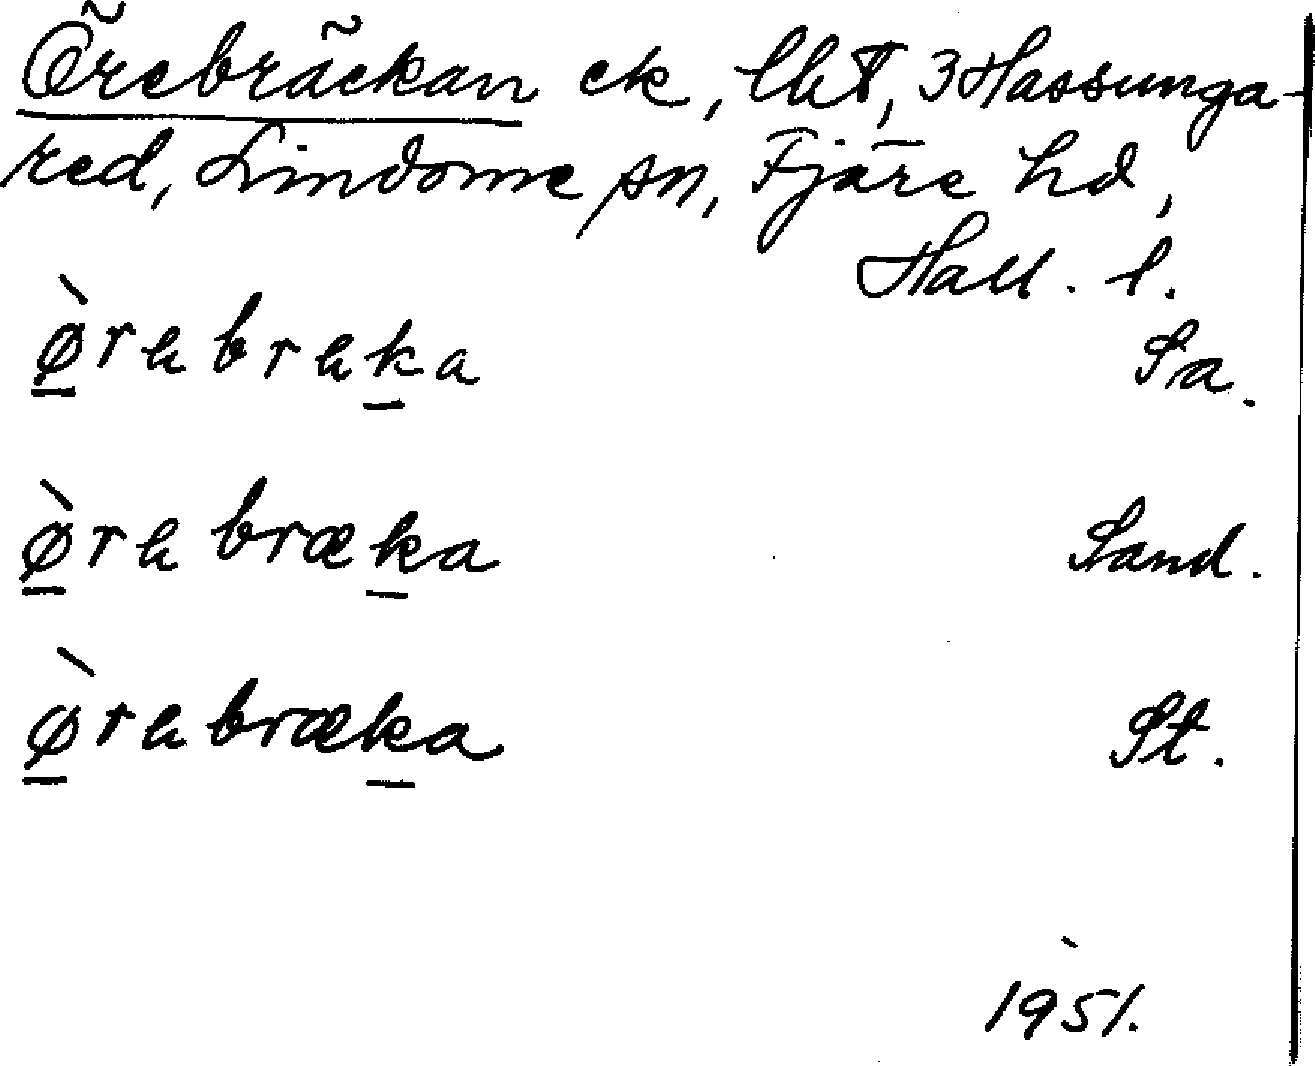 Örebräckan ek, lht, 3 Hassunga-
red, Lindome sn, Fjäre hd,
Hall. l.
ø̀rebreka Sa.
ø̀rebræka Sand.
ø̀rebræka St.
1951.